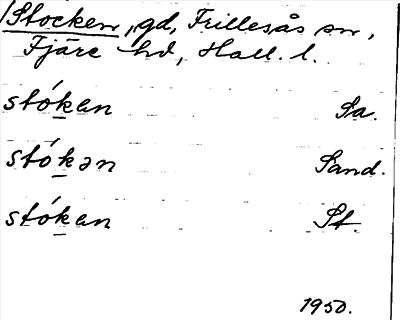 Stocken, gd, Frillesås sn,
Fjäre hd, Hall. l.
stóken Sa.
stókən Sand.
stóken St.
1950.